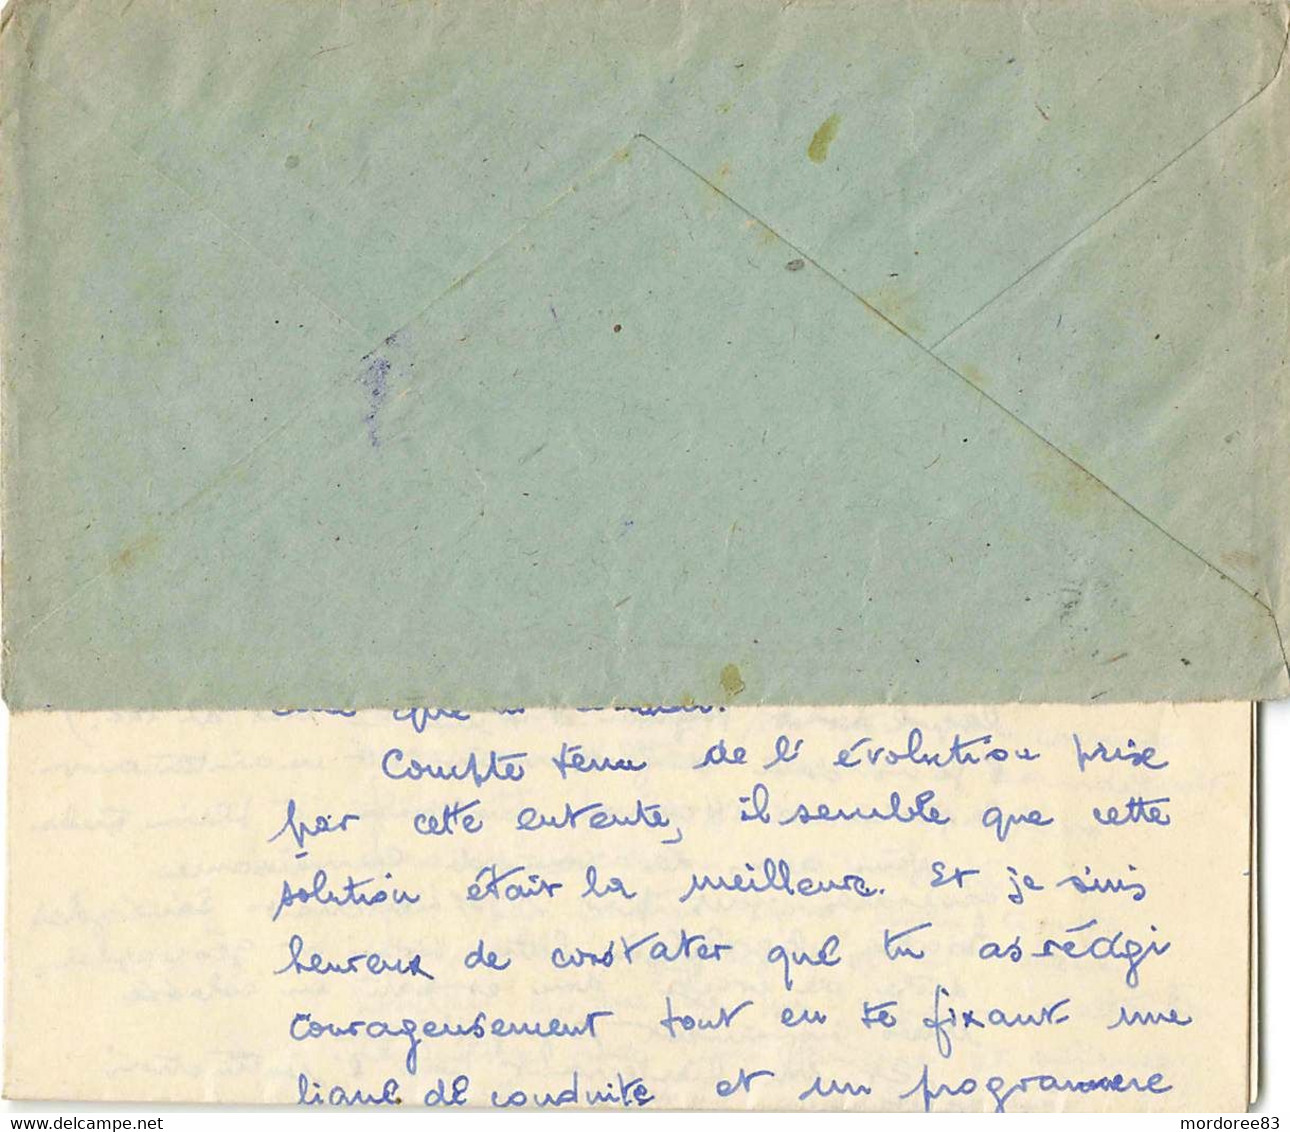 que
Compte tenu de l'évolution prise
par cette entente, il semble que cette
solution était la meilleure. Et je suis
heureux de constater que tu as réagi
courageusement tout en te fixant une
ligne de conduite et un programme
mordoree83